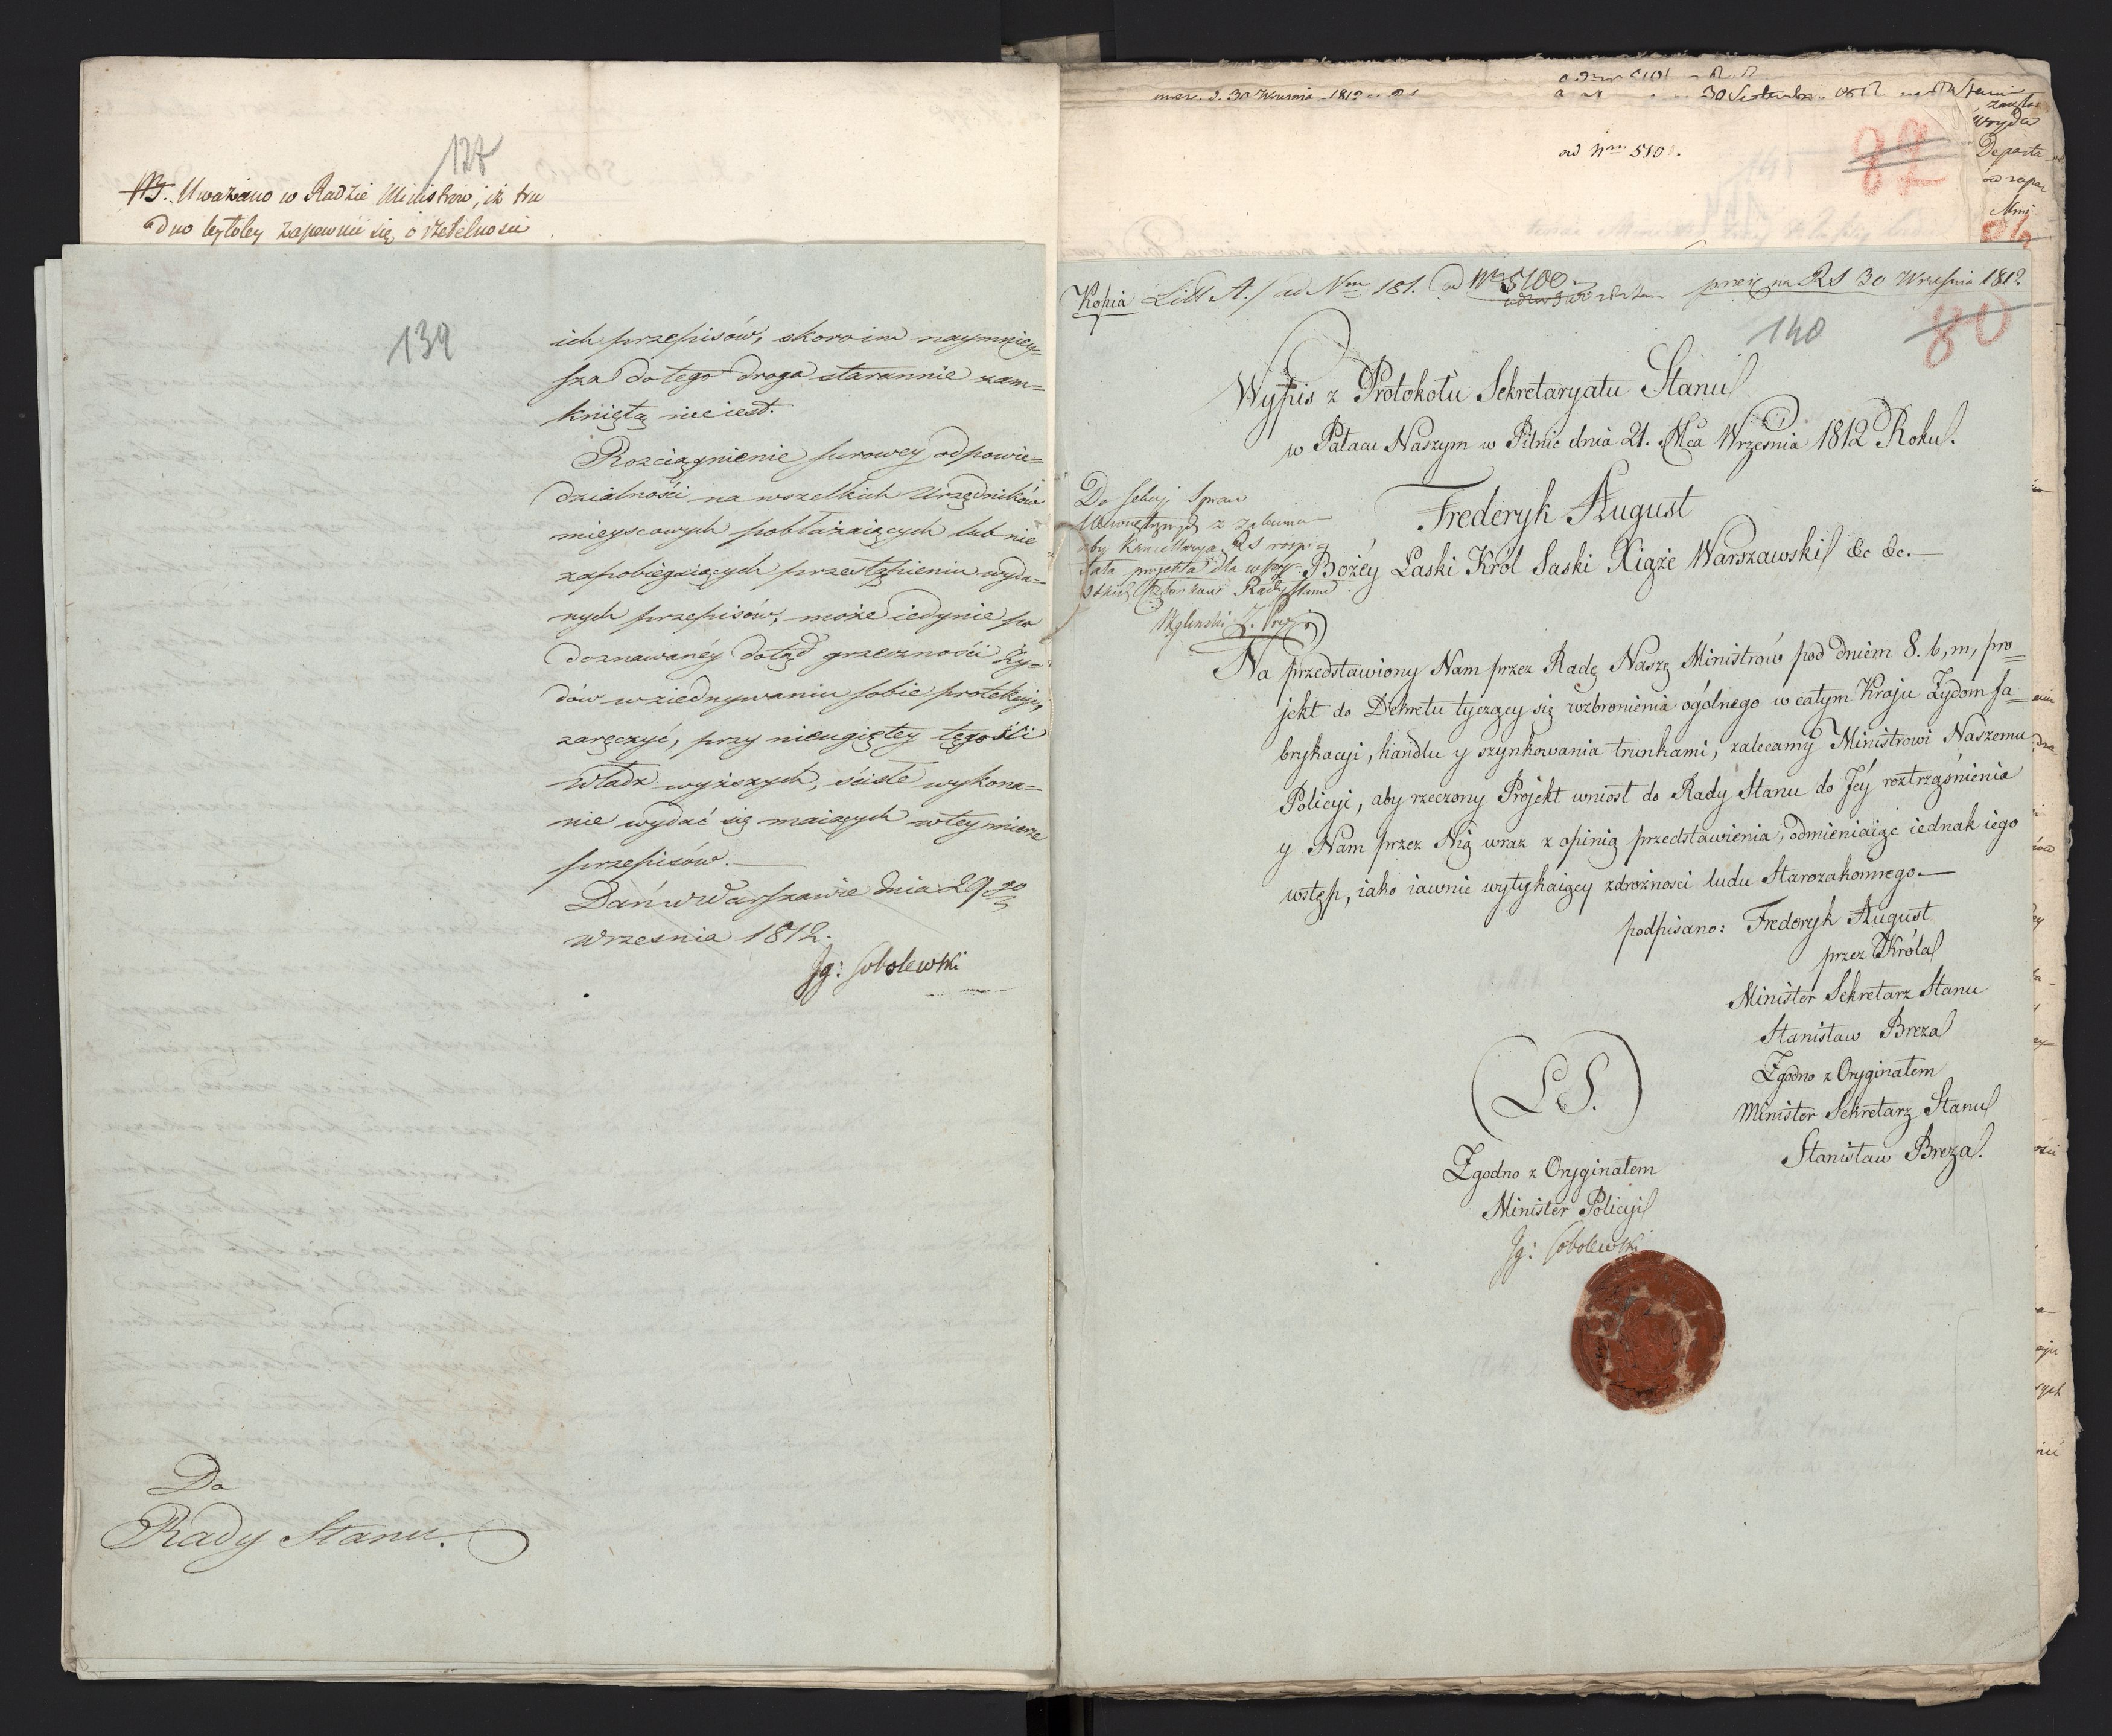 128
Uważano w Radzie Ministrow, iż tru
dno byłoby zapewnić się o rzetelności
139
ich przepisów, skoro im naymniey=
sza do tego droga starannie zam=
kniętą nie iest.
Rozciągnienie surowey odpowie=
dzialności na wszelkich Urzędników
mieyscowych pobłażaiących lub nie
zapobiegaiących przestąpieniu wyda=
nych przepisów, może iedynie po
doznawanéy dotąd grzeczności Ży=
dów w ziednywaniu sobie protekcyi,
zaręczyć, przy nieugiętey tęgości
Władz wyższych, ścisłe wykona=
nie wydać się maiących w tey mierze
przepisów.
Dan w Warszawie dnia 29go
września 1812.
Ig: Sobolewski
Do
Rady Stanu.
30 Września 1812
30 Septembr. 1812
ad Nrm 510
82
Departa
Kopia Litt A. / ad Nrm 181. ad Nr 5100 na RS 30 Września 1812
140
80
Wypis z Protokołu Sekretaryatu Stanu
w Pałacu Naszym w Pilnic dnia 21. Mca Września 1812 Roku.
Do Sekcyi Spraw
Wewnętrznych z zalece
aby Kancellarya RS rospi
sała projekta dla wszy=
stkich Członków Rady Stanu
Frederyk August
Bożéy Łaski Król Saski Xiąże Warszawski &c &c.—
Na przedstawiony Nam przez Radę Naszę Ministrów pod dniem 8. b, m, pro=
jekt do Dekretu tyczący się wzbronienia ogólnego w całym Kraju Żydom fa=
brykacyi, handlu y szynkowania trunkami, zalecamy Ministrowi Naszemu
Policyi, aby rzeczony Projekt wniost do Rady Stanu do Jéy roztrząśnienia
y Nam przez Nią wraz z opinią przedstawienia, odmieniaiąc iednak iego
wstęp, iako iawnie wytykaiący zdrożności ludu Starozakonnego.—
podpisano: Frederyk August
przez Króla
Minister Sekretarz Stanu
Stanisław Breza
Zgodno z Oryginałem
Minister Sekretarz Stanu
Stanisław Breza.
(L S.)
Zgodno z Oryginałem
Minister Policyi
Ig: Sobolewski